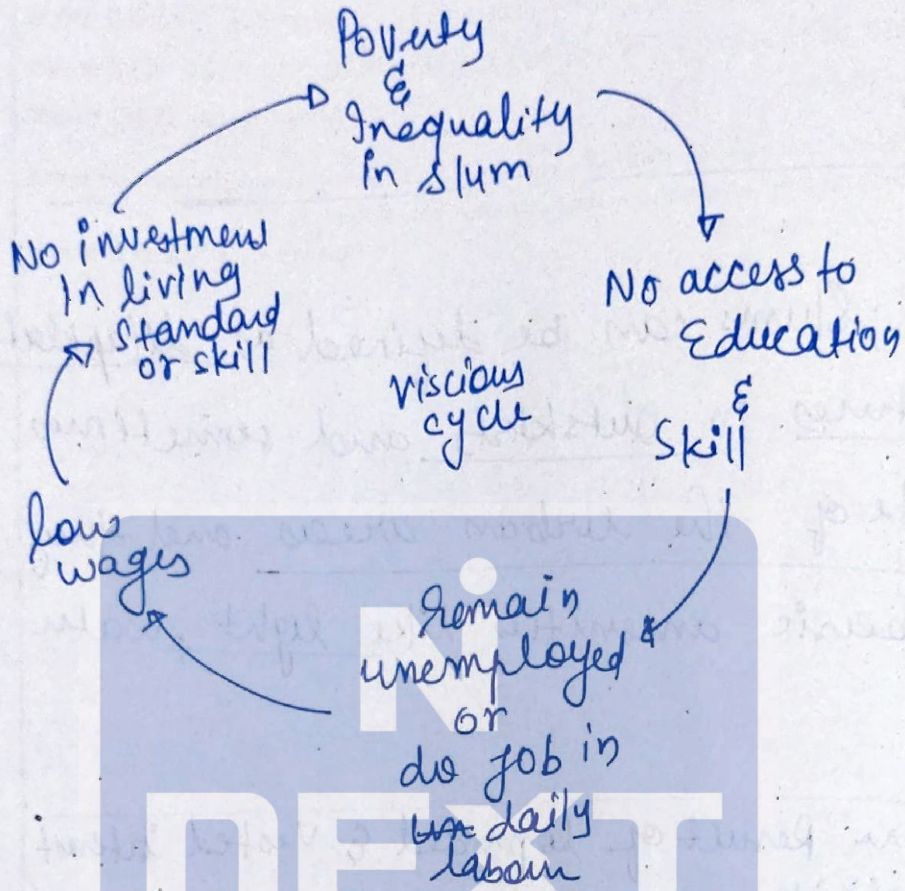 Poverty
&
Inequality
in slum
No access to
Education
&
Skill
remain
unemployed
or
do job in
daily
labour
low
wages
No investment
In living
standard
or skill
viscious
cycle
N
NEXT